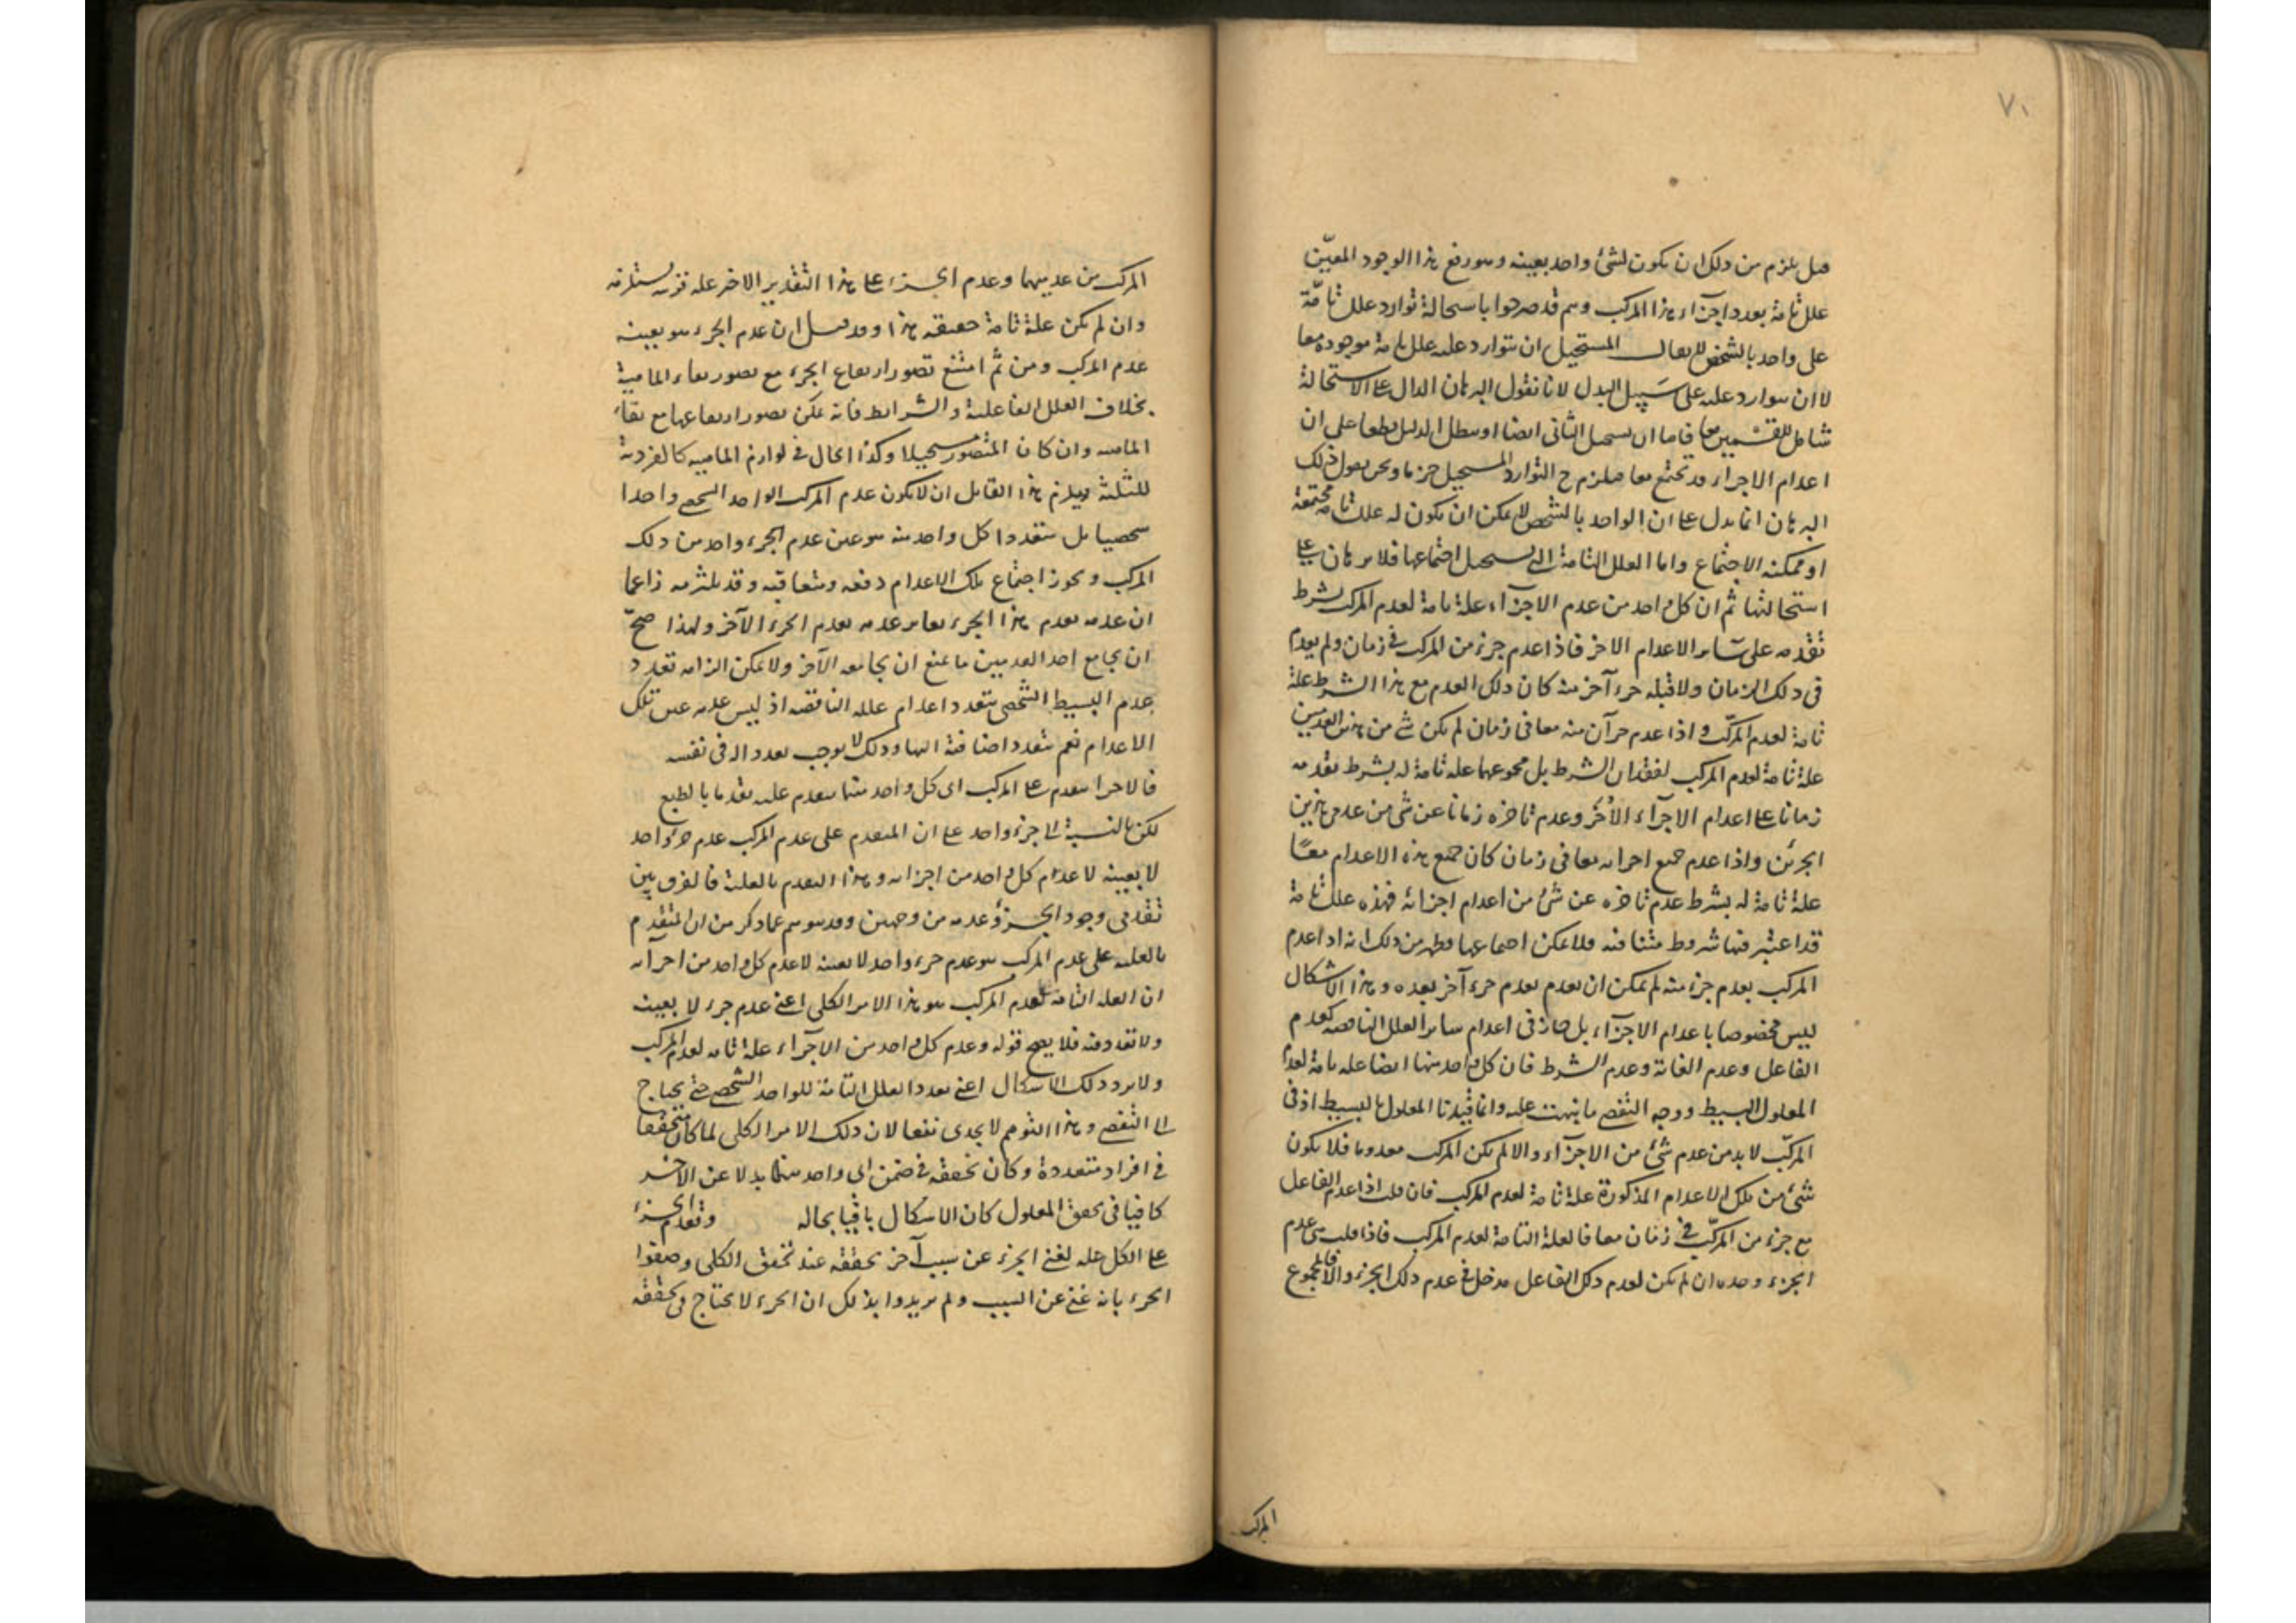 ٧١
قيل يلزم من ذلك ان يكون لشئ واحد بعينه وهو رفع هذا الوجود المعيّن
علل تامة بعدد اجزاء هذا المركب وهم قد صرحوا باستحالة توارد علل تامّة
على واحد بالشخص لا يقال المستحيل ان يتوارد عليه علل تامة موجودة معا
لا ان يتوارد عليه على سَبيل البدل لانا نقول البرهان الدال على الاستحالة
شامل للقسمين معا فاما ان يستحيل الثانى ايضا او يبطل الدليل قطعا على ان
اعدام الاجزاء قد تجتمع معا فيلزم ح التوارد المستحيل جزما ونحن نقول ذلك
البرهان انما يدل على ان الواحد بالشخص لا يمكن ان يكون له علل تامة مجتمعة
او ممكنة الاجتماع واما العلل التامة التى يستحيل اجتماعها فلا برهان على
استحالتها ثم ان كل واحد من عدم الاجزآء علة تامة لعدم المركب بشرط
تقدمه على سَاير الاعدام الاخر فاذا عدم جزء من المركب فى زمان ولم يعدم
فى ذلك الزمان ولا قبله جزء آخر منه كان ذلك العدم مع هذا الشرط علة
تامة لعدم المركّب واذا عدم جزآن منه معا فى زمان لم يكن شئ من هذين العدمين
علة تامة لعدم المركب لفقدان الشرط بل مجموعهما علة تامة له بشرط تقدمه
زمانا على اعدام الاجزآء الاُخَر وعدم تاخره زمانا عن شئ من عدمى هذين
الجزئين واذا عدم جميع اجزائه معا فى زمان كان جميع هذه الاعدام معًا
علة تامة له بشرط عدم تاخره عن شئ من اعدام اجزائه فهذه علل تامة
قد اعتبر فيها شروط متنافية فلا يمكن اجتماعها وظهر من ذلك انه اذا عدم
المركب بعدم جزء منه لم يمكن ان يعدم بعدم جزء آخر بعده وهذا الاشكال
ليس مخصوصا باعدام الاجزآء بل جاز فى اعدام ساير العلل الناقصة كعدم
الفاعل وعدم الغاية وعدم الشرط فان كل واحد منها ايضا علة تامة لعدم
المعلول البسيط ووجه التفصى ما نبهت عليه وانما قيدنا المعلول بالبسيط اذ فى
المركّب لا بد من عدم شئ من الاجزآء والا لم يكن المركب معدوما فلا يكون
شئ من تلك الاعدام المذكورة علة تامة لعدم المركب فان قلت اذا عدم الفاعل
مع جزء من المركّب فى زمان معا فالعلة التامة لعدم المركب ماذا قلت هى عدم
الجزء وحده ان لم يكن لعدم ذلك الفاعل مدخل فى عدم ذلك الجزء والا فالمجموع
المركب
المركب من عدميهما وعدم الجزء على هذا التقدير الاخر علة قريبة مستلزمة
وان لم يكن علة تامة حقيقة هذا وقد قيل ان عدم الجزء هو بعينه
عدم المركب ومن ثَمّ امتنع تصور ارتفاع الجزء مع تصور بقاء الماهية
بخلاف العلل الفاعلية والشرايط فانه يمكن تصور ارتفاعها مع بقاء
الماهية وان كان المتصور مستحيلا وكذا الحال فى لوازم الماهية كالفردية
للثلثة ويلزم هذا القائل ان لا يكون عدم المركب الواحد الشخصى واحدا
شخصيا بل متعددا كل واحد منه هو عين عدم الجزء واحد من ذلك
المركب ويجوز اجتماع تلك الاعدام دفعة ومتعاقبة وقد يلتزمه زاعما
ان عدمه بعدم هذا الجزء يغاير عدمه بعدم الجزء الآخر ولهذا صحّ
ان يجامع احد العدمين ما يمنع ان يجامعه الآخر ولا يمكن الزامه تعدد
عدم البسيط الشخصى بتعدد اعدام علله الناقصة اذ ليس عدمه عين تلك
الاعدام نعم يتعدد اضافته اليها وذلك لا يوجب تعدد اله فى نفسه
فالاجزاء متقدم على المركب اى كل واحد منها متقدم عليه تقدما بالطبع
لكن بالنسبة الى جزء واحد على ان المتقدم على عدم المركب عدم جزء واحد
لا بعينه لا عدم كل واحد من اجزائه وهذا التقدم بالعلية فالفرق بين
تقدمى وجود الجزء وعدمه من وجهين وقد يتوهم مما ذكر من ان المتقدم
بالعلية على عدم المركب هو عدم جزء واحد لا بعينه لا عدم كل واحد من اجزآئه
ان العلة التامة لعدم المركب هو هذا الامر الكلى اعنى عدم جزء لا بعينه
ولا تعدد فيه فلا يصح قوله وعدم كل واحد من الاجزآء علة تامة لعدم المركب
ولا يرد ذلك الاشكال اعنى تعدد العلل التامة للواحد الشخصى حتى يحتاج
الى التفصى وهذا التوهم لا يجدى نفعا لان ذلك الامر الكلى لما كان متحققا
فى افراد متعددة وكان تحققه فى ضمن اى واحد منها بدلا عن الآخر
كافيا فى تحقق المعلول كان الاشكال باقيا بحاله وتقدم الجزء
على الكل علة لغنى الجزء عن سبب آخر تحققه عند تحقق الكلى وصفوا
الجزء بانه غنى عن السبب ولم يريدوا بذلك ان الجزء لا يحتاج فى تحققه